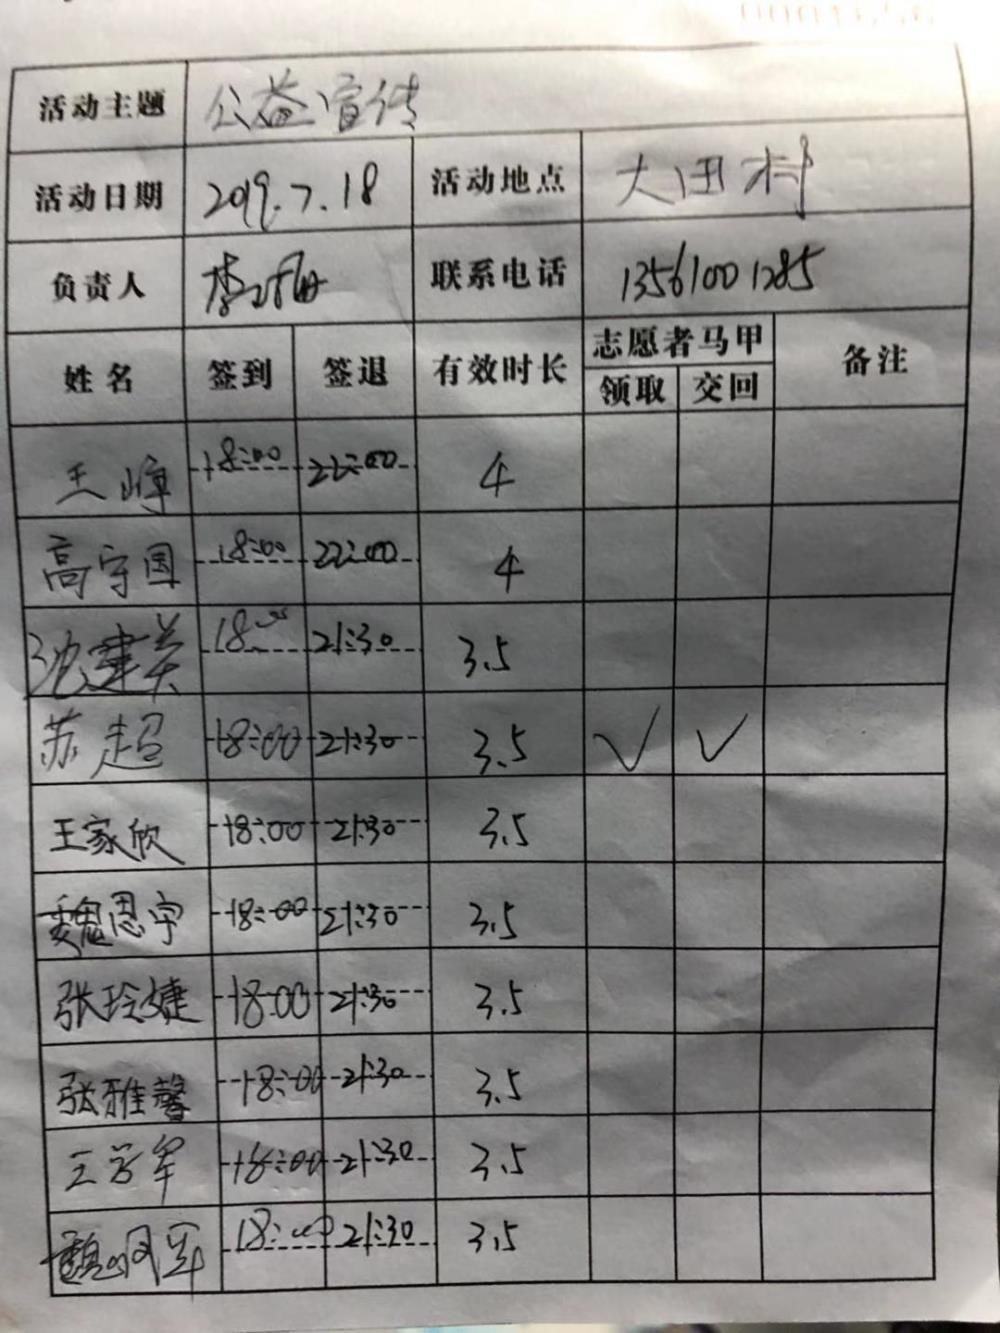 活动主题 公益宣传
活动日期 2019.7.18 活动地点 大田村
负责人 联系电话 13561001285
姓名 签到 签退 有效时长 志愿者马甲 备注
领取 交回
王崞 18:00 22:00 4
高守国 18:00 22:00 4
沈建美 18:00 21:30 3.5
苏超 18:00 21:30 3.5 √ √
王家欣 18:00 21:30 3.5
魏恩宇 18:00 21:30 3.5
张玲婕 18:00 21:30 3.5
张雅馨 18:00 21:30 3.5
王学军 18:00 21:30 3.5
18:00 21:30 3.5